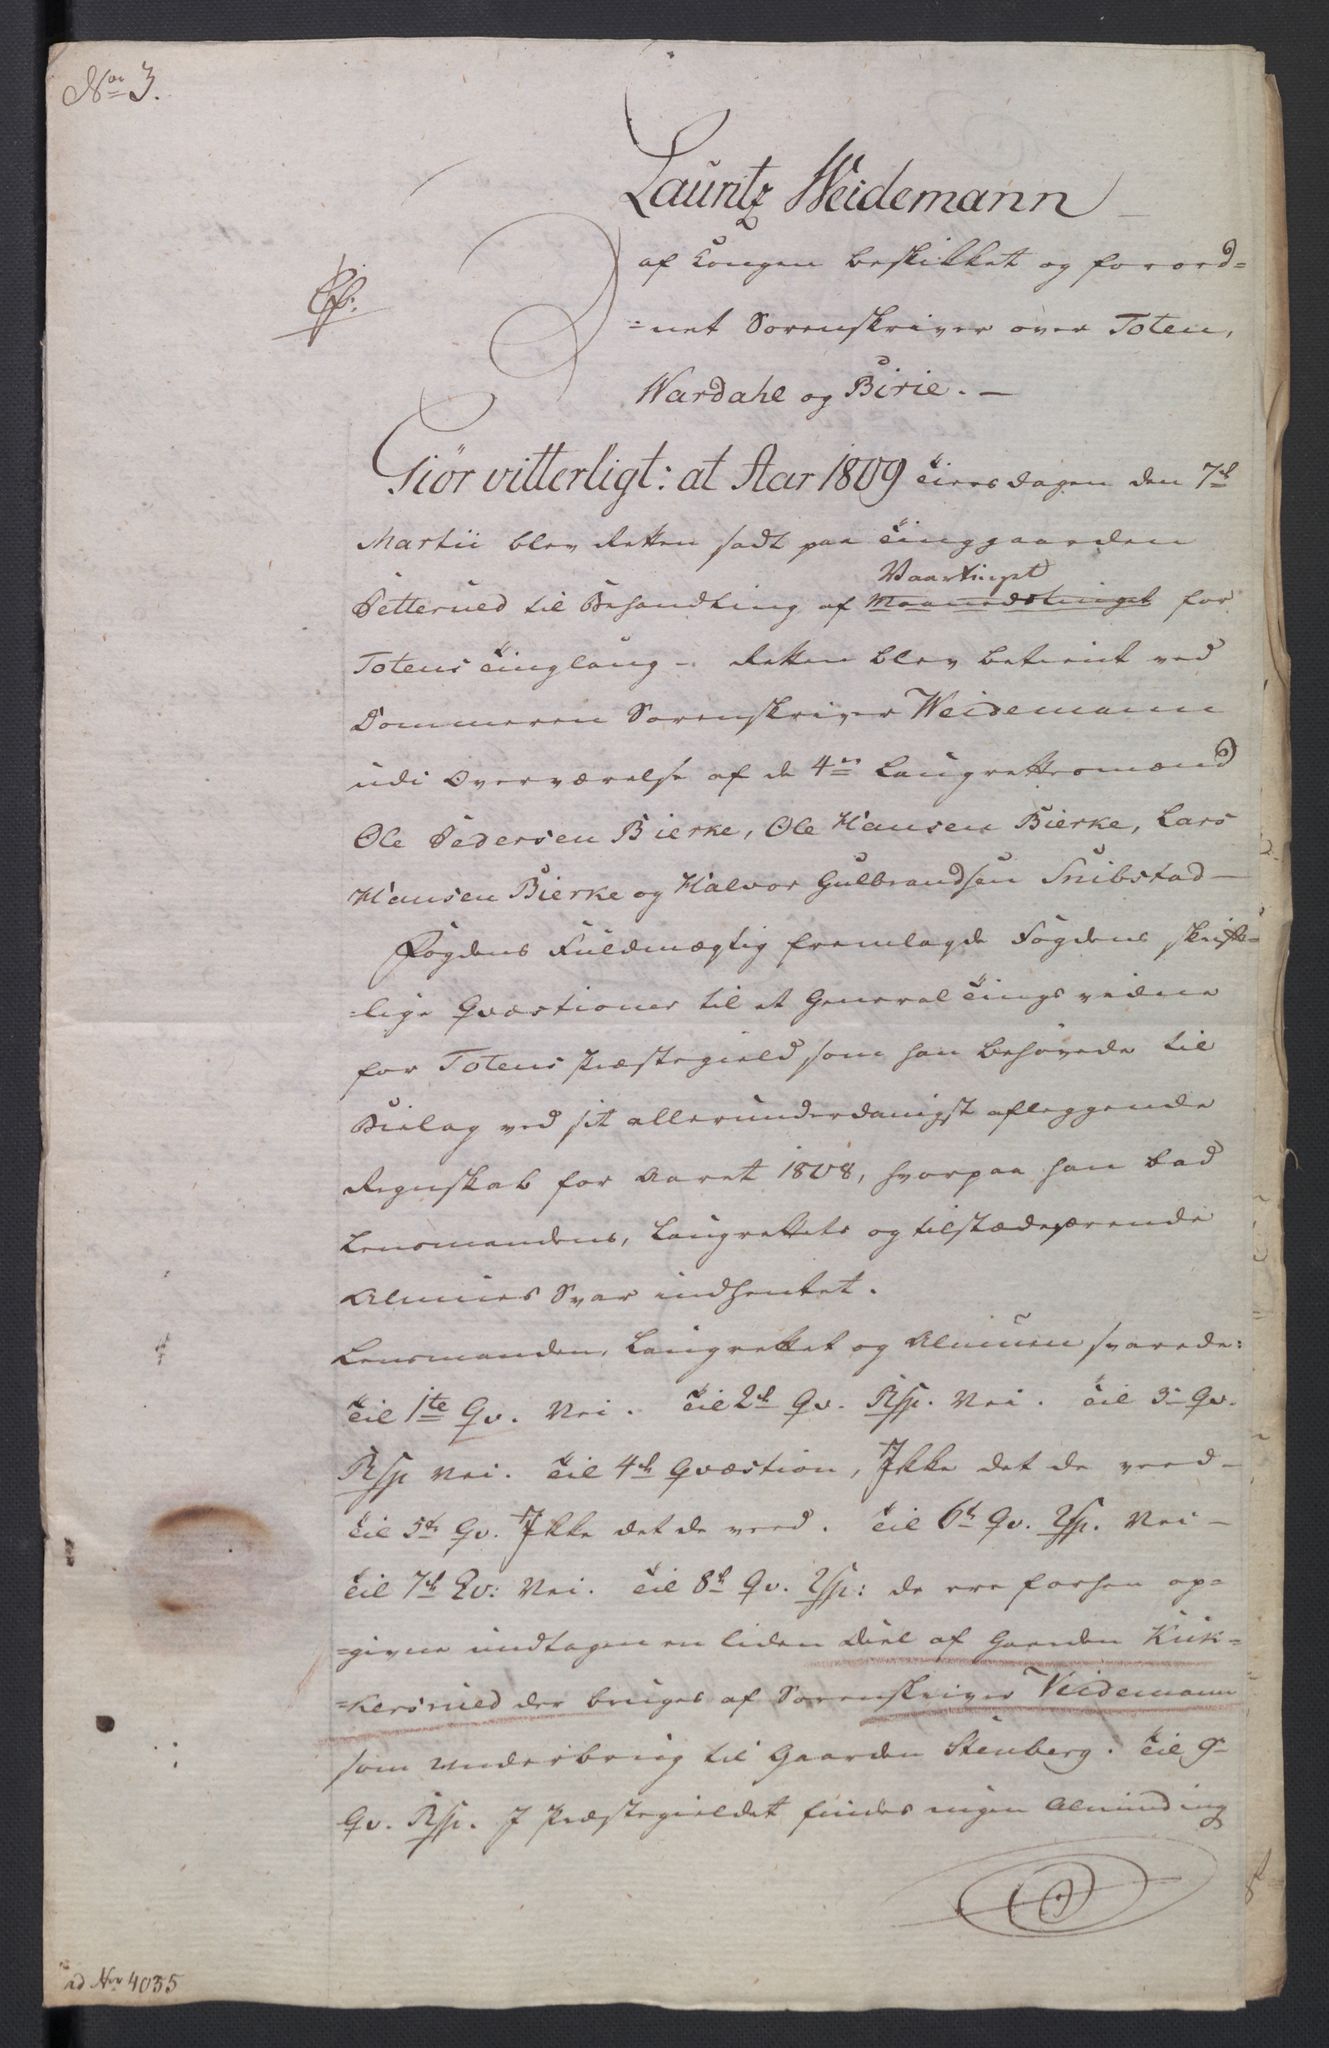 No 3.
Lauritz Weidemann
af Kongen beskikket og forord=
=net Sorenskriver over Toten,
Wardahl og Birie. —
Giör vitterligt: at Aar 1809 Tiresdagen den 7de
Martii blev Retten sadt paa Tinggaarden
Vaartinget
Petterued til Behandling af Maanedstinget for
Totens Tinglaug – Retten blev betient ved
Dommeren Sorenskriver Weidemann
udi Overværelse af de 4re Laugrettesmænd
Ole Pedersen Bierke, Ole Hansen Bierke, Lars
Hansen Bierke og Halvor Gulbrandsen Snibstad —
Fogdens Fuldmægtig fremlagde Fogdens skrift=
=lige Qvæstioner til et General Tings vidne
for Totens Præstegield som han behøvede til
Bielag ved sit allerunderdanigst aflæggende
Regnskab for Aaret 1808, hvorpaa han bad
Lensmandens, Laugrettets og tilstædeværende
Almues Svar indhentet.
Lensmanden, Laugrettet og Almuen svarede:
Til 1te Qv. Nei. Til 2de Qv. Rsp. Nei. Til 3 Qv.
Rsp Nei. Til 4de Qvæstion, Ikke det de veed –
Til 5te Qv. Ikke det de veed. Til 6te Qv. Rsp. Nei –
Til 7de Qv: Nei. Til 8de Qv. Rsp: de ere forhen op=
=givne undtagen en liden Deel af Gaarden Kiik=
=kersrued der bruges af Sorenskriver Weidemann
som Underbrug til Gaarden Stenberg. Til 9
Qv. Rsp. I Præstegieldet findes ingen Alminding
ad No 4035